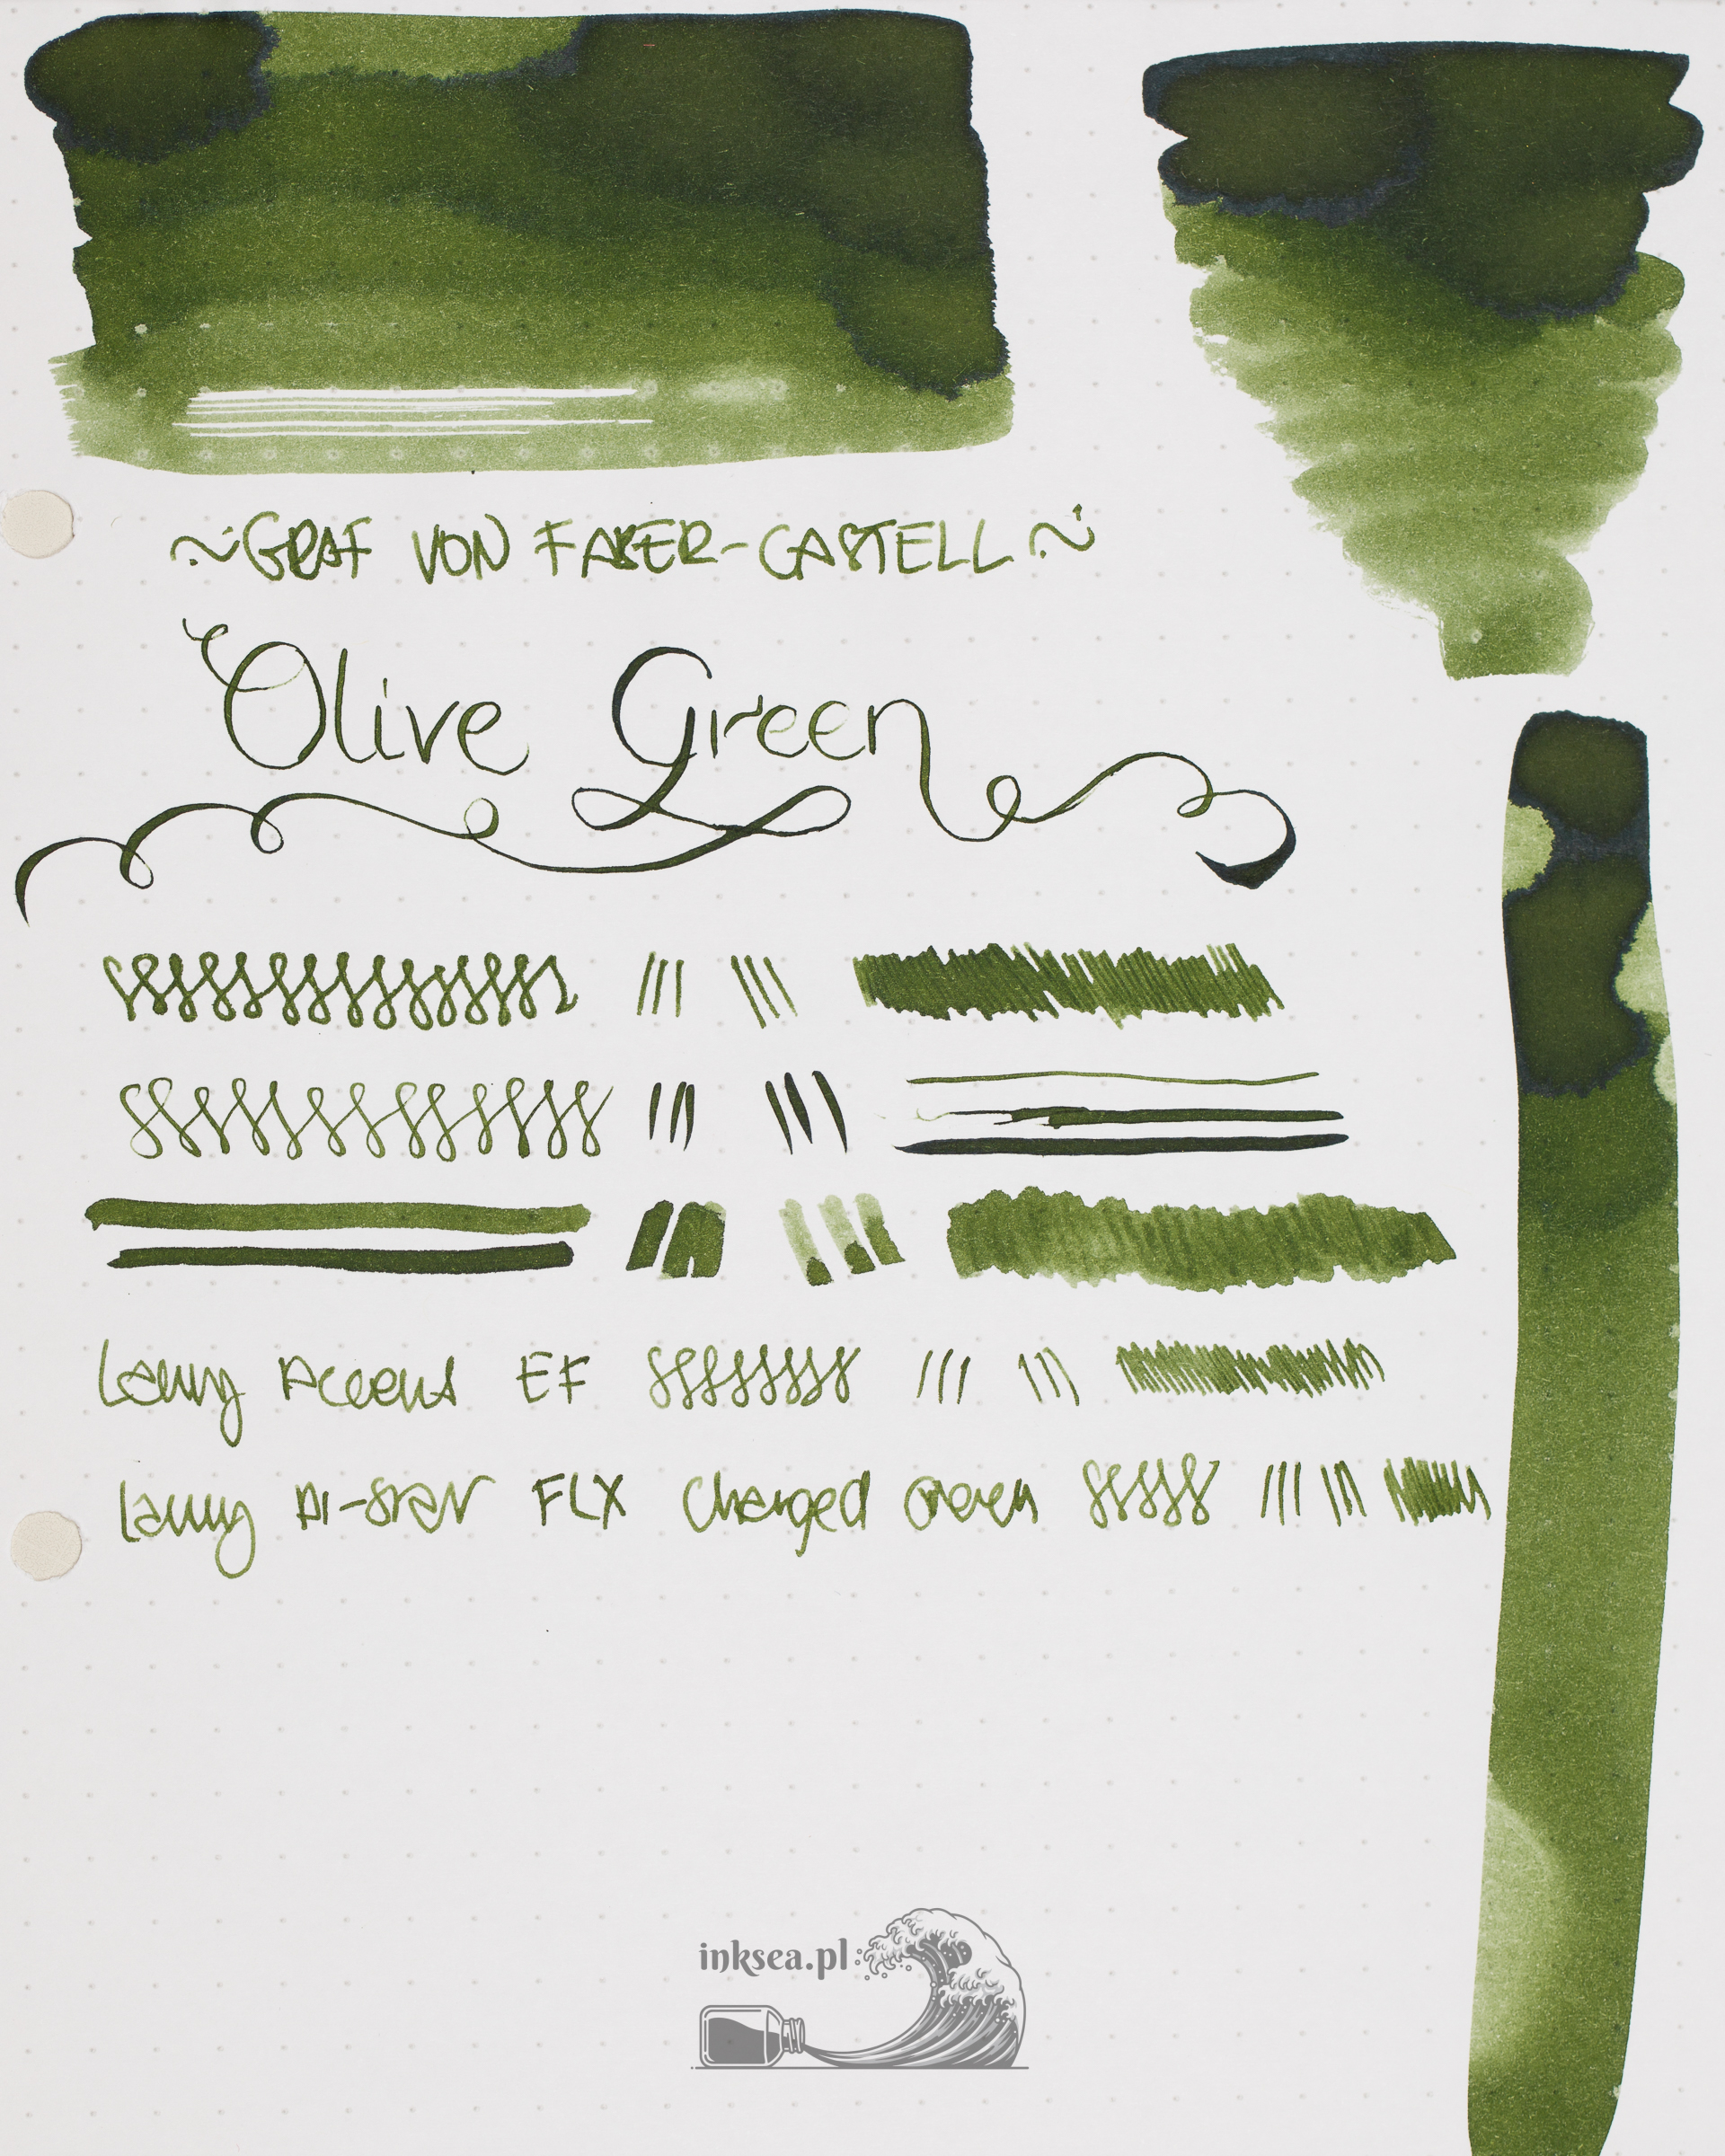 ~GRAF VON FABER-CASTELL~
Olive Green
Lamy Accent EF
Lamy Al-Star FLX Charged Green
inksea.pl